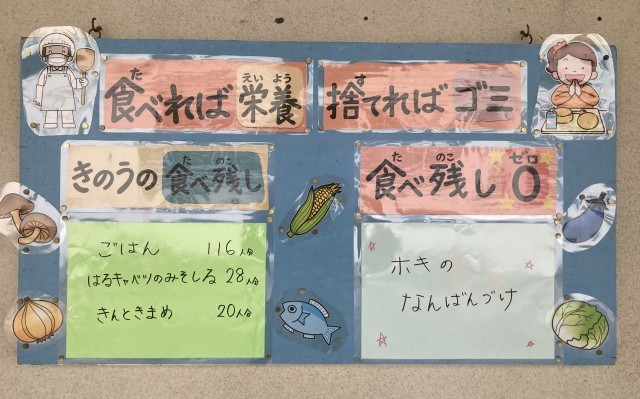 食べれば栄養
捨てればゴミ
きのうの食べ残し
ごはん 116人分
はるキャベツのみそしる 28人分
きんときまめ 20人分
食べ残し0
ホキの
なんばんづけ